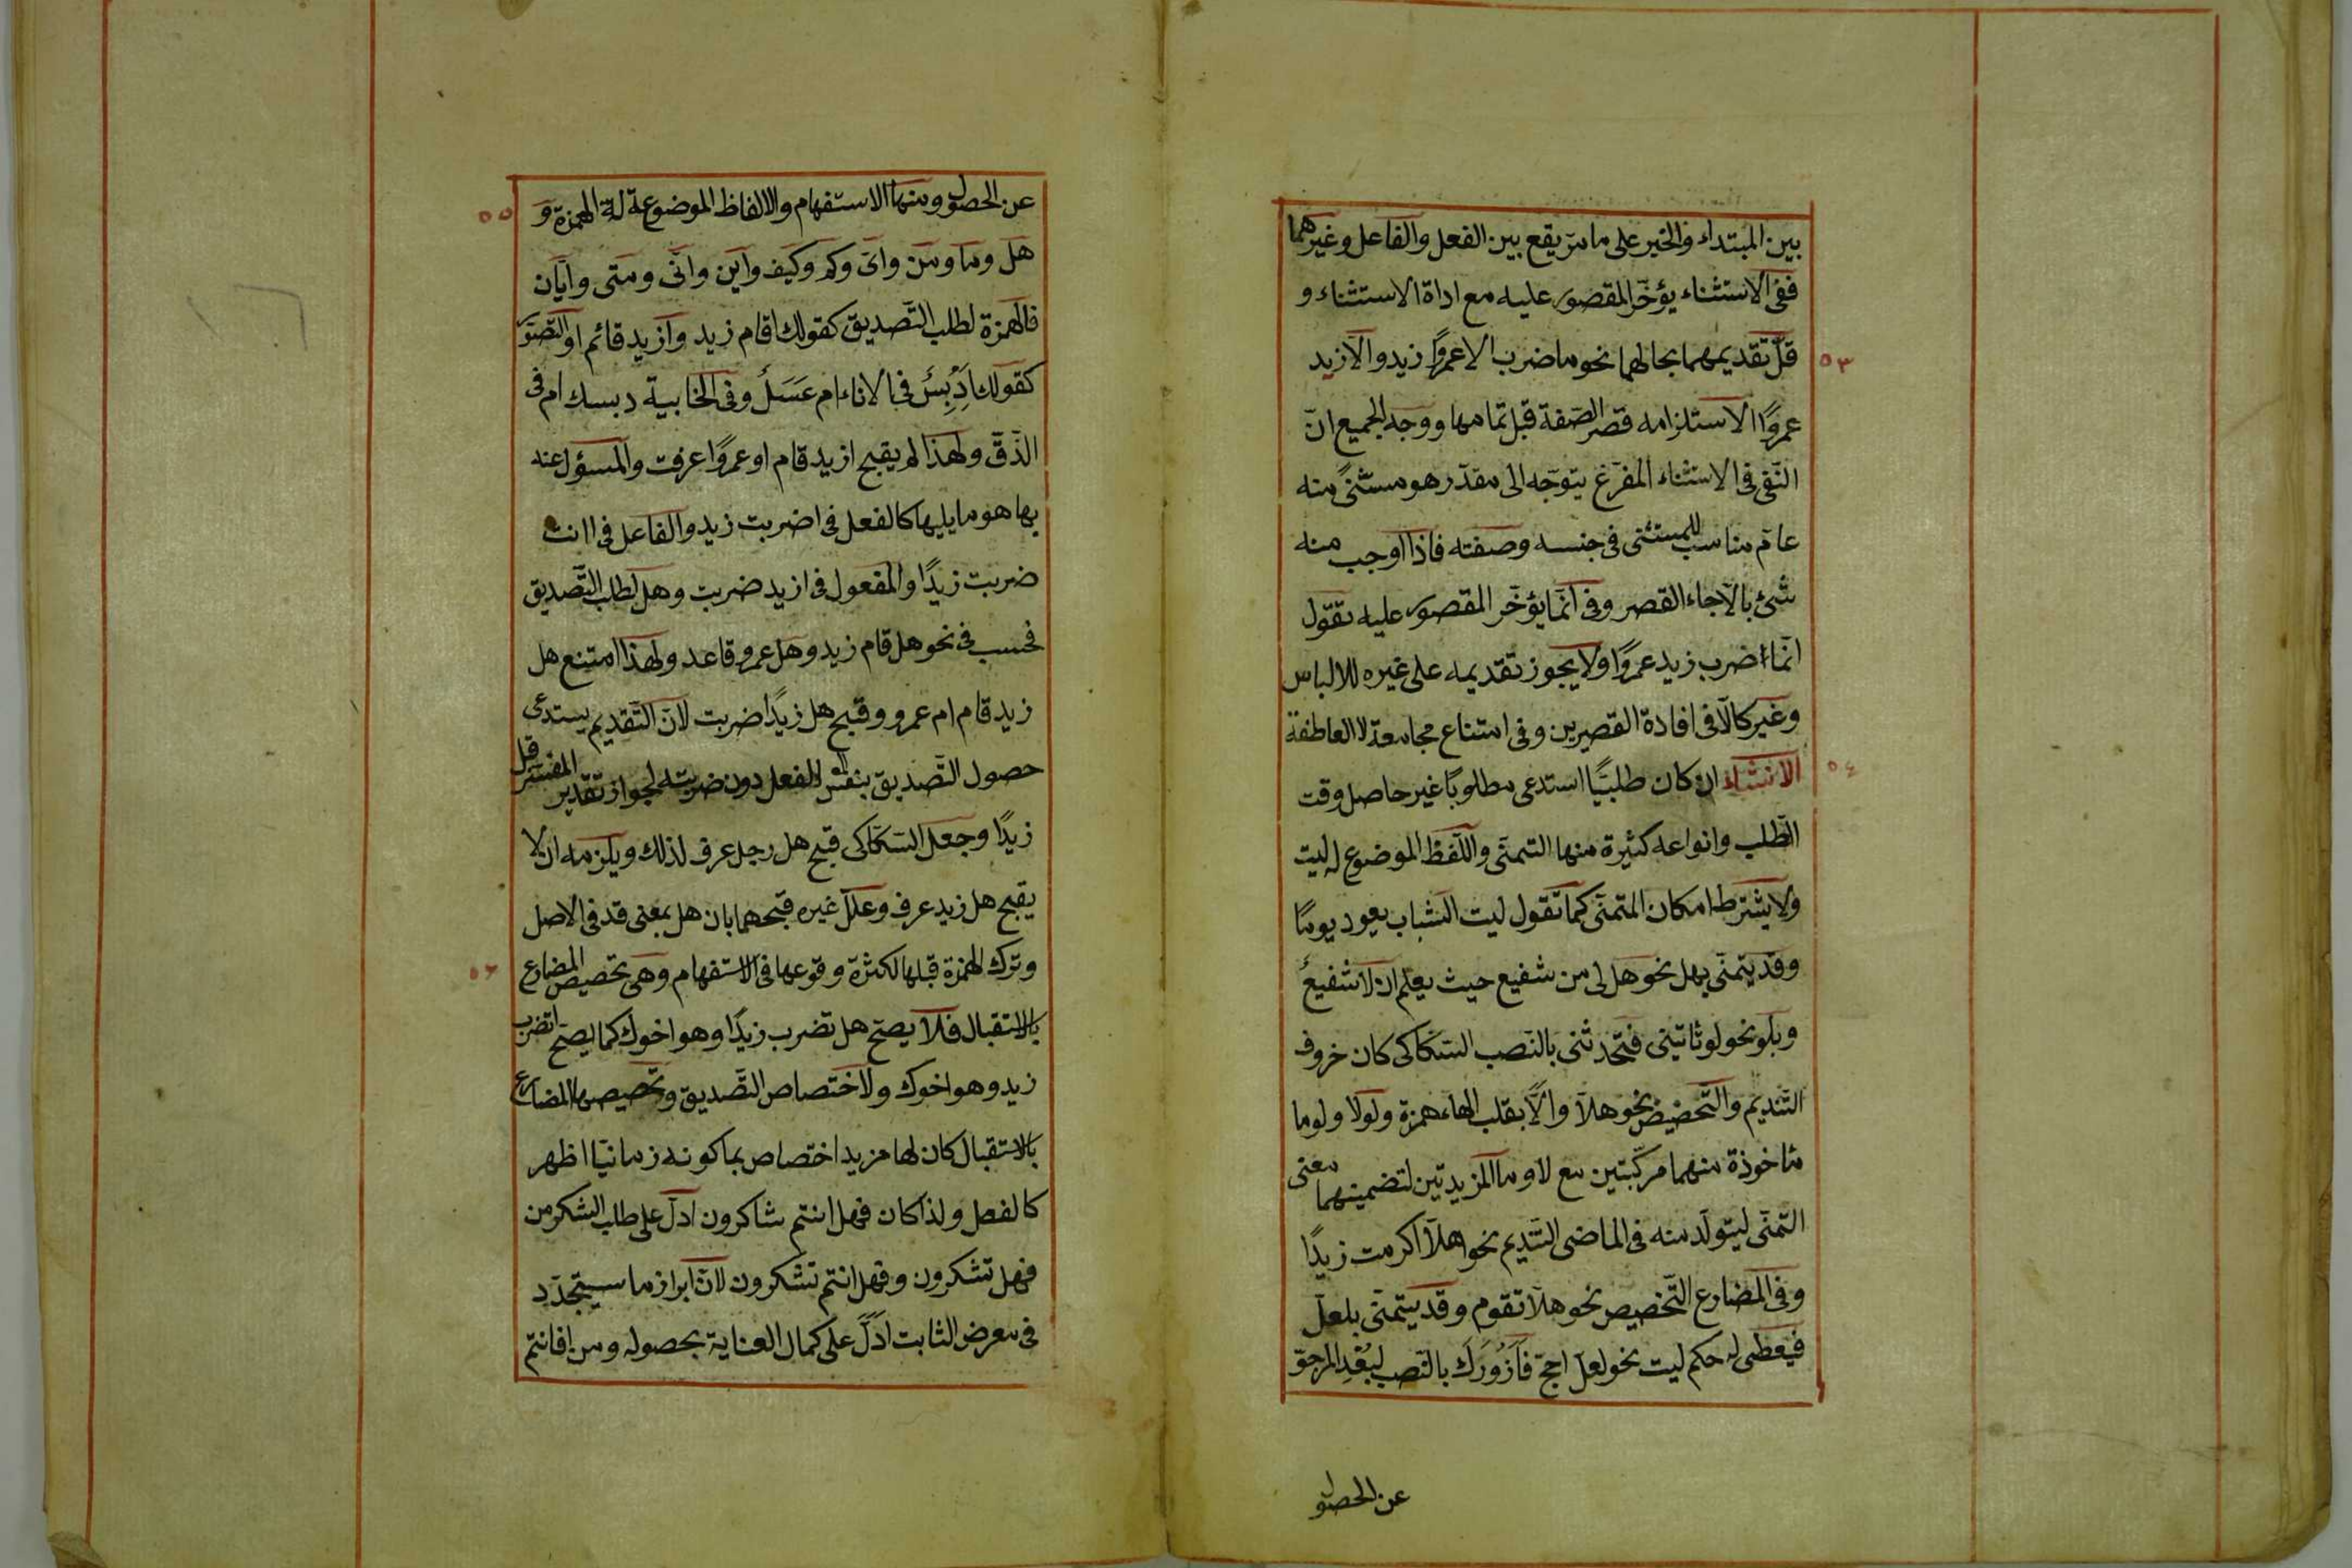 بين المبتداء والخبر على ما مرّ يقع بين الفعل والفاعل وغيرهما
ففى الاستثناء يؤخّر المقصور عليه مع اداة الاستثناء و
قلّ تقديمهما بحالهما نحو ما ضرب الا عمروًا زيد والّا زيد
٥٣
عمروًا الاستلزامه قصر الصّفة قبل تمامها ووجه الجميع انّ
النّفى فى الاستثناء المفرّغ يتوجّه الى مقدّر هو مستثنىً منه
عامّ مناسب للمستثنى فى جنسه وصفته فاذا اوجب منه
شئ بالّا جاء القصر وفى انّما يؤخّر المقصور عليه تقول
انّما اضرب زيد عمروًا ولا يجوز تقديمه على غيره للالباس
وغير كالّا فى افادة القصرين وفى امتناع مجامعة لا العاطفة
الانشاء ان كان طلبيًّا استدعى مطلوبًا غير حاصل وقت
٥٤
الطّلب وانواعه كثيرة منها التمنّى واللّفظ الموضوع له ليت
ولا يشترط امكان المتمنّى كما تقول ليت الشباب يعود يومًا
وقد يتمنّى بهل نحو هل لى من شفيع حيث يعلم ان لا شفيع
وبلو نحو لو تاتينى فتحدثنى بالنّصب السّكّاكى كان حروف
التّنديم والتّحضيض نحو هلّا والّا بقلب الهاء همزة ولولا ولوما
ماخوذة منهما مركّبتين مع لا وما المزيدتين لتضمينهما معنى
التّمنّى ليتولّد منه فى الماضى التّنديم نحو هلّا اكرمت زيدًا
وفى المضارع التّخصيص نحو هلّا تقوم وقد يتمنّى بلعلّ
فيعطى له حكم ليت نحو لعلّ احجّ فَاَزُورَكَ بالنّصب لبُعْدِ المرجوّ
عن الحصول
عن الحصول ومنها الاستفهام والالفاظ الموضوعة له الهمزة و
٥٥
هل وما ومن واىّ وكم وكيف واين وانّى ومتى وايّان
فالهمزة لطلب التّصديق كقولك اقام زيد وازيد قائم او التّصوّر
كقولك اَدِبْسٌ فى الاناء ام عَسَلٌ وفى الخابية دبسك ام فى
الذّقّ ولهذا لم يقبح ازيد قام او عمروًا عرفت والمسؤل عنه
بها هو ما يليها كالفعل فى اضربت زيد والفاعل فى اانت
ضربت زيدًا والمفعول فى ازيد ضربت وهل لطلب التّصديق
فحسب فى نحو هل قام زيد وهل عمرو قاعد ولهذا امتنع هل
زيد قام ام عمرو وقبح هل زيدًا ضربت لانّ التّقديم يستدعى
حصول التّصديق بنفس الفعل دون ضربته لجواز تقدير المفسّر قبل
زيدًا وجعل السّكّاكى قبح هل رجل عرف لذلك ويلزمه ان لا
يقبح هل زيد عرف وعلّل غيره قبحهما بان هل بمعنى قد فى الاصل
وترك الهمزة قبلها لكثرة وقوعها فى الاستفهام وهى تخصيص المضارع
٥٦
بالاستقبال فلا يصحّ هل تضرب زيدًا وهو اخوك كما يصحّ اتضرب
زيد وهو اخوك ولاختصاص التّصديق وتخصيصها المضارع
بالاستقبال كان لها مزيد اختصاص بما كونه زمانيًّا اظهر
كالفعل ولذا كان فهل انتم شاكرون ادلّ على طلب الشكر من
فهل تشكرون وفهل انتم تشكرون لانّ ابراز ما سيتجدّد
فى معرض الثابت ادلّ على كمال العناية بحصوله ومن افانتم